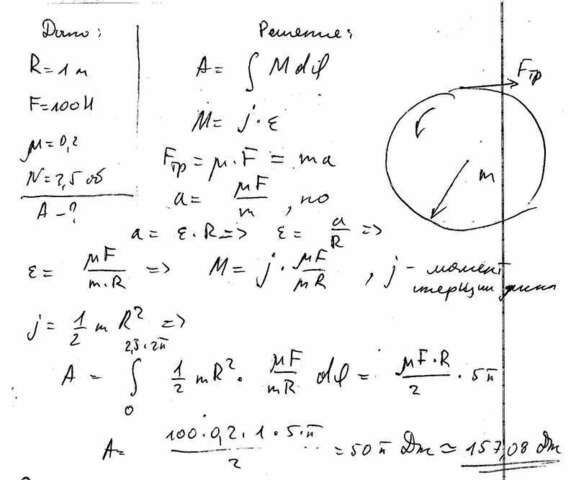 Дано:
R = 1 м
F = 100 Н
μ = 0,2
N = 2,5 об
A - ?
Решение:
A = ∫ M dφ
M = j · ε
Fтр = μ · F = ma
a = μF/m , но
a = ε · R => ε = a/R =>
ε = μF/(m·R) => M = j · μF/(mR) , j - момент
инерции диска
j = 1/2 m R² =>
A = ∫₀^(2,5·2π) 1/2 mR² · μF/(mR) dφ = μF·R/2 · 5π
A = 100·0,2·1·5·π/2 = 50π Дж ≃ 157,08 Дж
Fтр
m